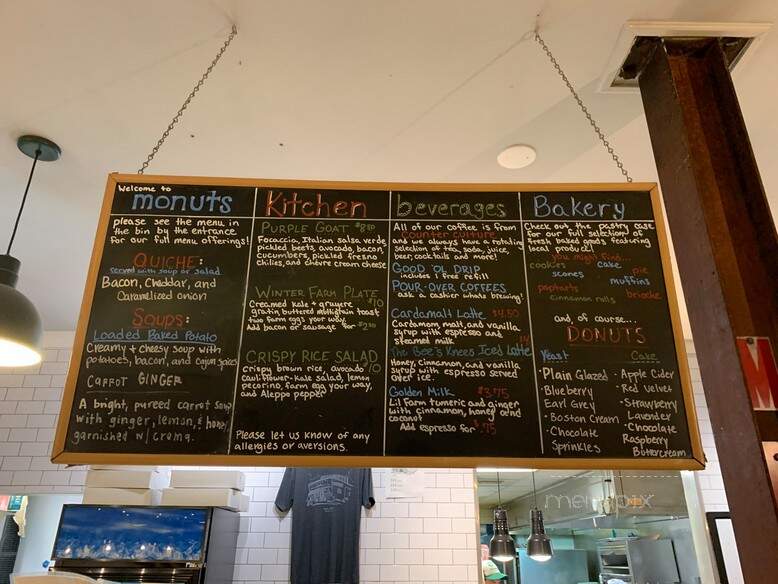 Welcome to
monuts
please see the menu in
the bin by the entrance
for our full menu offerings!
QUICHE:
served with soup or salad
Bacon, Cheddar, and
Caramelized onion
Soups:
Loaded Baked Potato
Creamy + cheesy soup with
potatoes, bacon, and cajun spices
CARROT GINGER
A bright, pureed carrot soup
with ginger, lemon, & honey
garnished w/ crema.
Kitchen
PURPLE GOAT $8
Focaccia, Italian salsa verde,
pickled beets, avocado, bacon,
cucumbers, pickled fresno
chilies, and chevre cream cheese
WINTER FARM PLATE
Creamed kale + gruyere $10
gratin, buttered multigrain toast
two farm eggs your way.
Add bacon or sausage for $2
CRISPY RICE SALAD
crispy brown rice, avocado $10
cauliflower-kale salad, lemon
pecorino, farm egg your way,
and Aleppo pepper
Please let us know of any
allergies or aversions.
beverages
All of our coffee is from
counter culture
and we always have a rotating
selection of tea, soda, juice,
beer, cocktails and more!
GOOD OL DRIP
includes 1 free refill
POUR-OVER COFFEES
ask a cashier whats brewing!
Cardamalt Latte $4.50
Cardamom, malt, and vanilla
syrup with espresso and
steamed milk
The Bee's Knees Iced Latte
Honey, cinnamon, and vanilla
syrup with espresso served
over ice.
Golden Milk $3.75
Lil Farm turmeric and ginger
with cinnamon, honey and
coconut
Add espresso for $.75
Bakery
Check out the pastry case
for our full selection of
fresh baked goods featuring
local produce!
you might find...
cookies cake
scones pie
muffins
poptarts
cinnamon rolls brioche
and, of course...
DONUTS
Yeast Cake
• Plain Glazed • Apple Cider
• Blueberry • Red Velvet
Earl Grey • Strawberry
• Boston Cream Lavender
• Chocolate • Chocolate
Sprinkles Raspberry
Buttercream
menupix